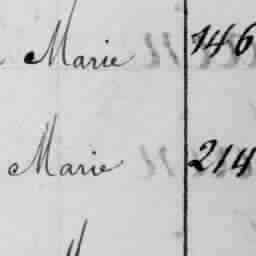 Marie 146
Marie 214